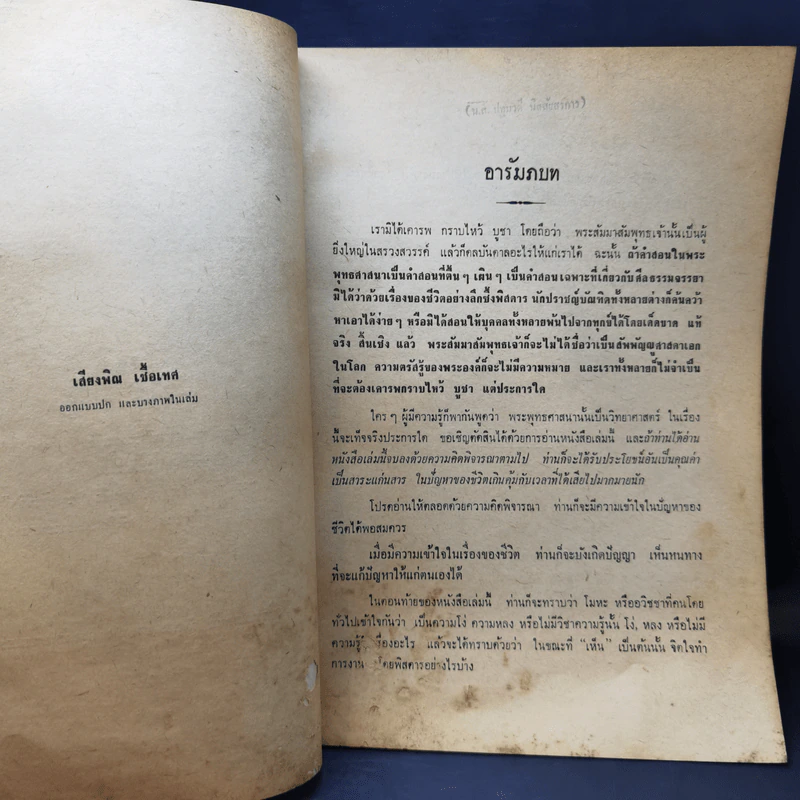 เสียงพิณ เชื้อเทศ
ออกแบบปก และบางภาพในเล่ม
อารัมภบท
เรามิได้เคารพ กราบไหว้ บูชา โดยถือว่า พระสัมมาสัมพุทธเจ้านั้นเป็นผู้
ยิ่งใหญ่ในสรวงสวรรค์ แล้วก็ดลบันดาลอะไรให้แก่เราได้ ฉะนั้น ถ้าคำสอนในพระ
พุทธศาสนาเป็นคำสอนที่ตื้น ๆ เผิน ๆ เป็นคำสอนเฉพาะที่เกี่ยวกับศีลธรรมจรรยา
มิได้ว่าด้วยเรื่องของชีวิตอย่างลึกซึ้งพิสดาร นักปราชญ์บัณฑิตทั้งหลายต่างก็ค้นคว้า
หาเอาได้ง่าย ๆ หรือมิได้สอนให้บุคคลทั้งหลายพ้นไปจากทุกข์ได้โดยเด็ดขาด แท้
จริง สิ้นเชิง แล้ว พระสัมมาสัมพุทธเจ้าก็จะไม่ได้ชื่อว่าเป็นสัพพัญญูศาสดาเอก
ในโลก ความตรัสรู้ของพระองค์ก็จะไม่มีความหมาย และเราทั้งหลายก็ไม่จำเป็น
ที่จะต้องเคารพกราบไหว้ บูชา แต่ประการใด
ใคร ๆ ผู้มีความรู้ก็พากันพูดว่า พระพุทธศาสนานั้นเป็นวิทยาศาสตร์ ในเรื่อง
นี้จะเท็จจริงประการใด ขอเชิญตัดสินได้ด้วยการอ่านหนังสือเล่มนี้ และถ้าท่านได้อ่าน
หนังสือเล่มนี้จบลงด้วยความคิดพิจารณาตามไป ท่านก็จะได้รับประโยชน์อันเป็นคุณค่า
เป็นสาระแก่นสาร ในปัญหาของชีวิตเกินคุ้มกับเวลาที่ได้เสียไปมากมายนัก
โปรดอ่านให้ตลอดด้วยความคิดพิจารณา ท่านก็จะมีความเข้าใจในปัญหาของ
ชีวิตได้พอสมควร
เมื่อมีความเข้าใจในเรื่องของชีวิต ท่านก็จะบังเกิดปัญญา เห็นหนทาง
ที่จะแก้ปัญหาให้แก่ตนเองได้
ในตอนท้ายของหนังสือเล่มนี้ ท่านก็จะทราบว่า โมหะ หรืออวิชชาที่คนโดย
ทั่วไปเข้าใจกันว่า เป็นความโง่ ความหลง หรือไม่มีวิชาความรู้นั้น โง่, หลง หรือไม่มี
ความรู้ เรื่องอะไร แล้วจะได้ทราบด้วยว่า ในขณะที่ "เห็น" เป็นต้นนั้น จิตใจทำ
การงาน โดยพิสดารอย่างไรบ้าง